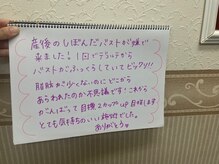 産後のしぼんだバストが嫌で
来ました！1回でデコルテから
バストがふっくらしていてビックリ!!
脂肪が少ないのにどこから
あらわれたのか不思議です！これから
がんばって目標2カップup目指します
とても気持ちのいい時間でした。
ありがとう